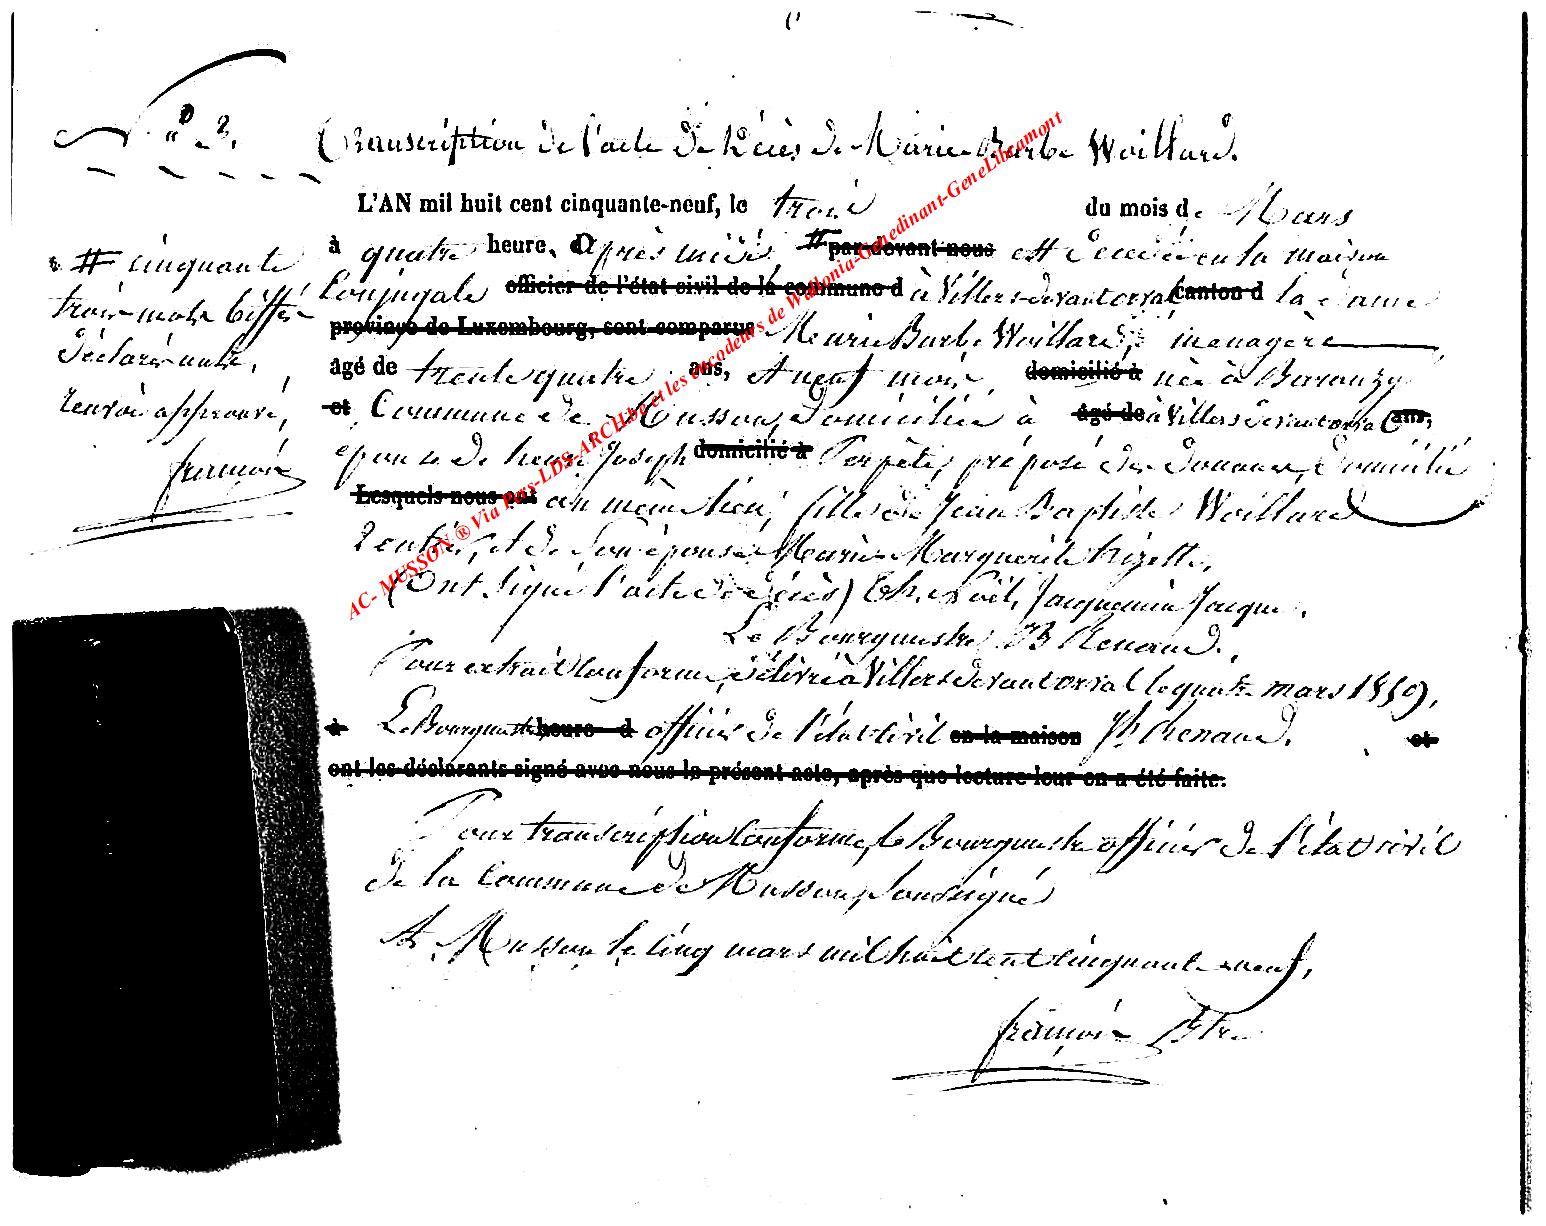 N° 3.
Transcription de l'acte de Décès de Marie Barbe Woillard.
L'AN mil huit cent cinquante-neuf, le trois du mois de Mars
à quatre heures après midi # par-devant nous est décédée en la maison
Conjugale officier de l'état civil de la commune d à Villers devant orval canton d la dame
province de Luxembourg, sont comparus Marie Barbe Woillard, ménagère
âgé de trente quatre ans, et neuf mois, domicilié à née à Baranzy
et Commune de Musson, domiciliée à âgé de à Villers devant orval ans,
épouse de henri Joseph domicilié à Perpète, préposé des douanes, domicilié
Lesquels nous ont au même lieu, fille de Jean Baptiste Woillard
rentier, et de son épouse Marie Marguerite
(Ont signé l'acte de décès) Ch. Noël, Jacquemin Jacque.
Le Bourgmestre Renaud.
Pour extrait conforme, délivré à Villers devant orval le quatre mars 1859,
à Le Bourgmestre heure d officier de l'état civil en la maison Renaud. et
ont les déclarants signé avec nous le présent acte, après que lecture leur en a été faite.
Pour transcription conforme, le Bourgmestre officier de l'état civil
de la Commune de Musson, soussigné
A Musson le cinq mars mil huit cent cinquante neuf,
françois Bstre
# cinquante
trois mots biffés
déclarés nuls,
renvoi approuvé,
françois
AC- MUSSON ® Via Pays-LDS-ARCH.be et les encodeurs de Wallonia-Genedinant-GeneLibramont